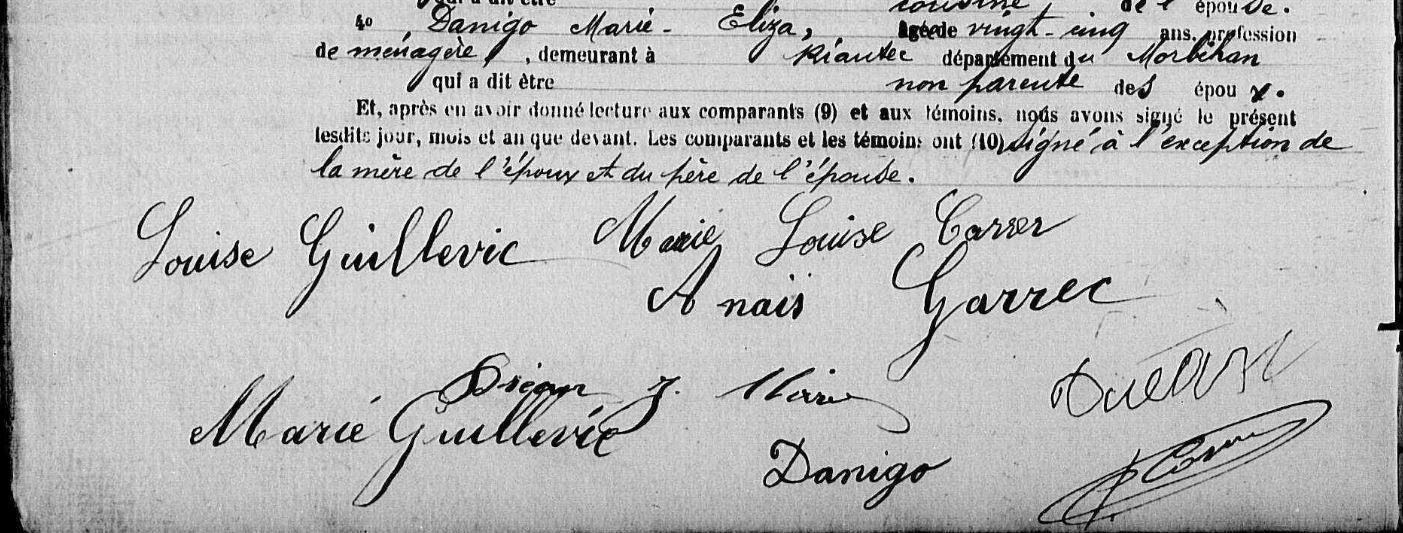 cousine de l'épouse.
4º Danigo Marie-Eliza, âgée de vingt-cinq ans, profession
de ménagère, demeurant à Riantec département du Morbihan
qui a dit être non parente des époux.
Et, après en avoir donné lecture aux comparants (9) et aux témoins, nous avons signé le présent
lesdits jour, mois et an que devant. Les comparants et les témoins ont (10) signé à l'exception de
la mère de l'époux et du père de l'épouse.
Louise Guillevic Marie Louise Carrer
Anaïs Garrec
J.
Marie Guillevic
Danigo